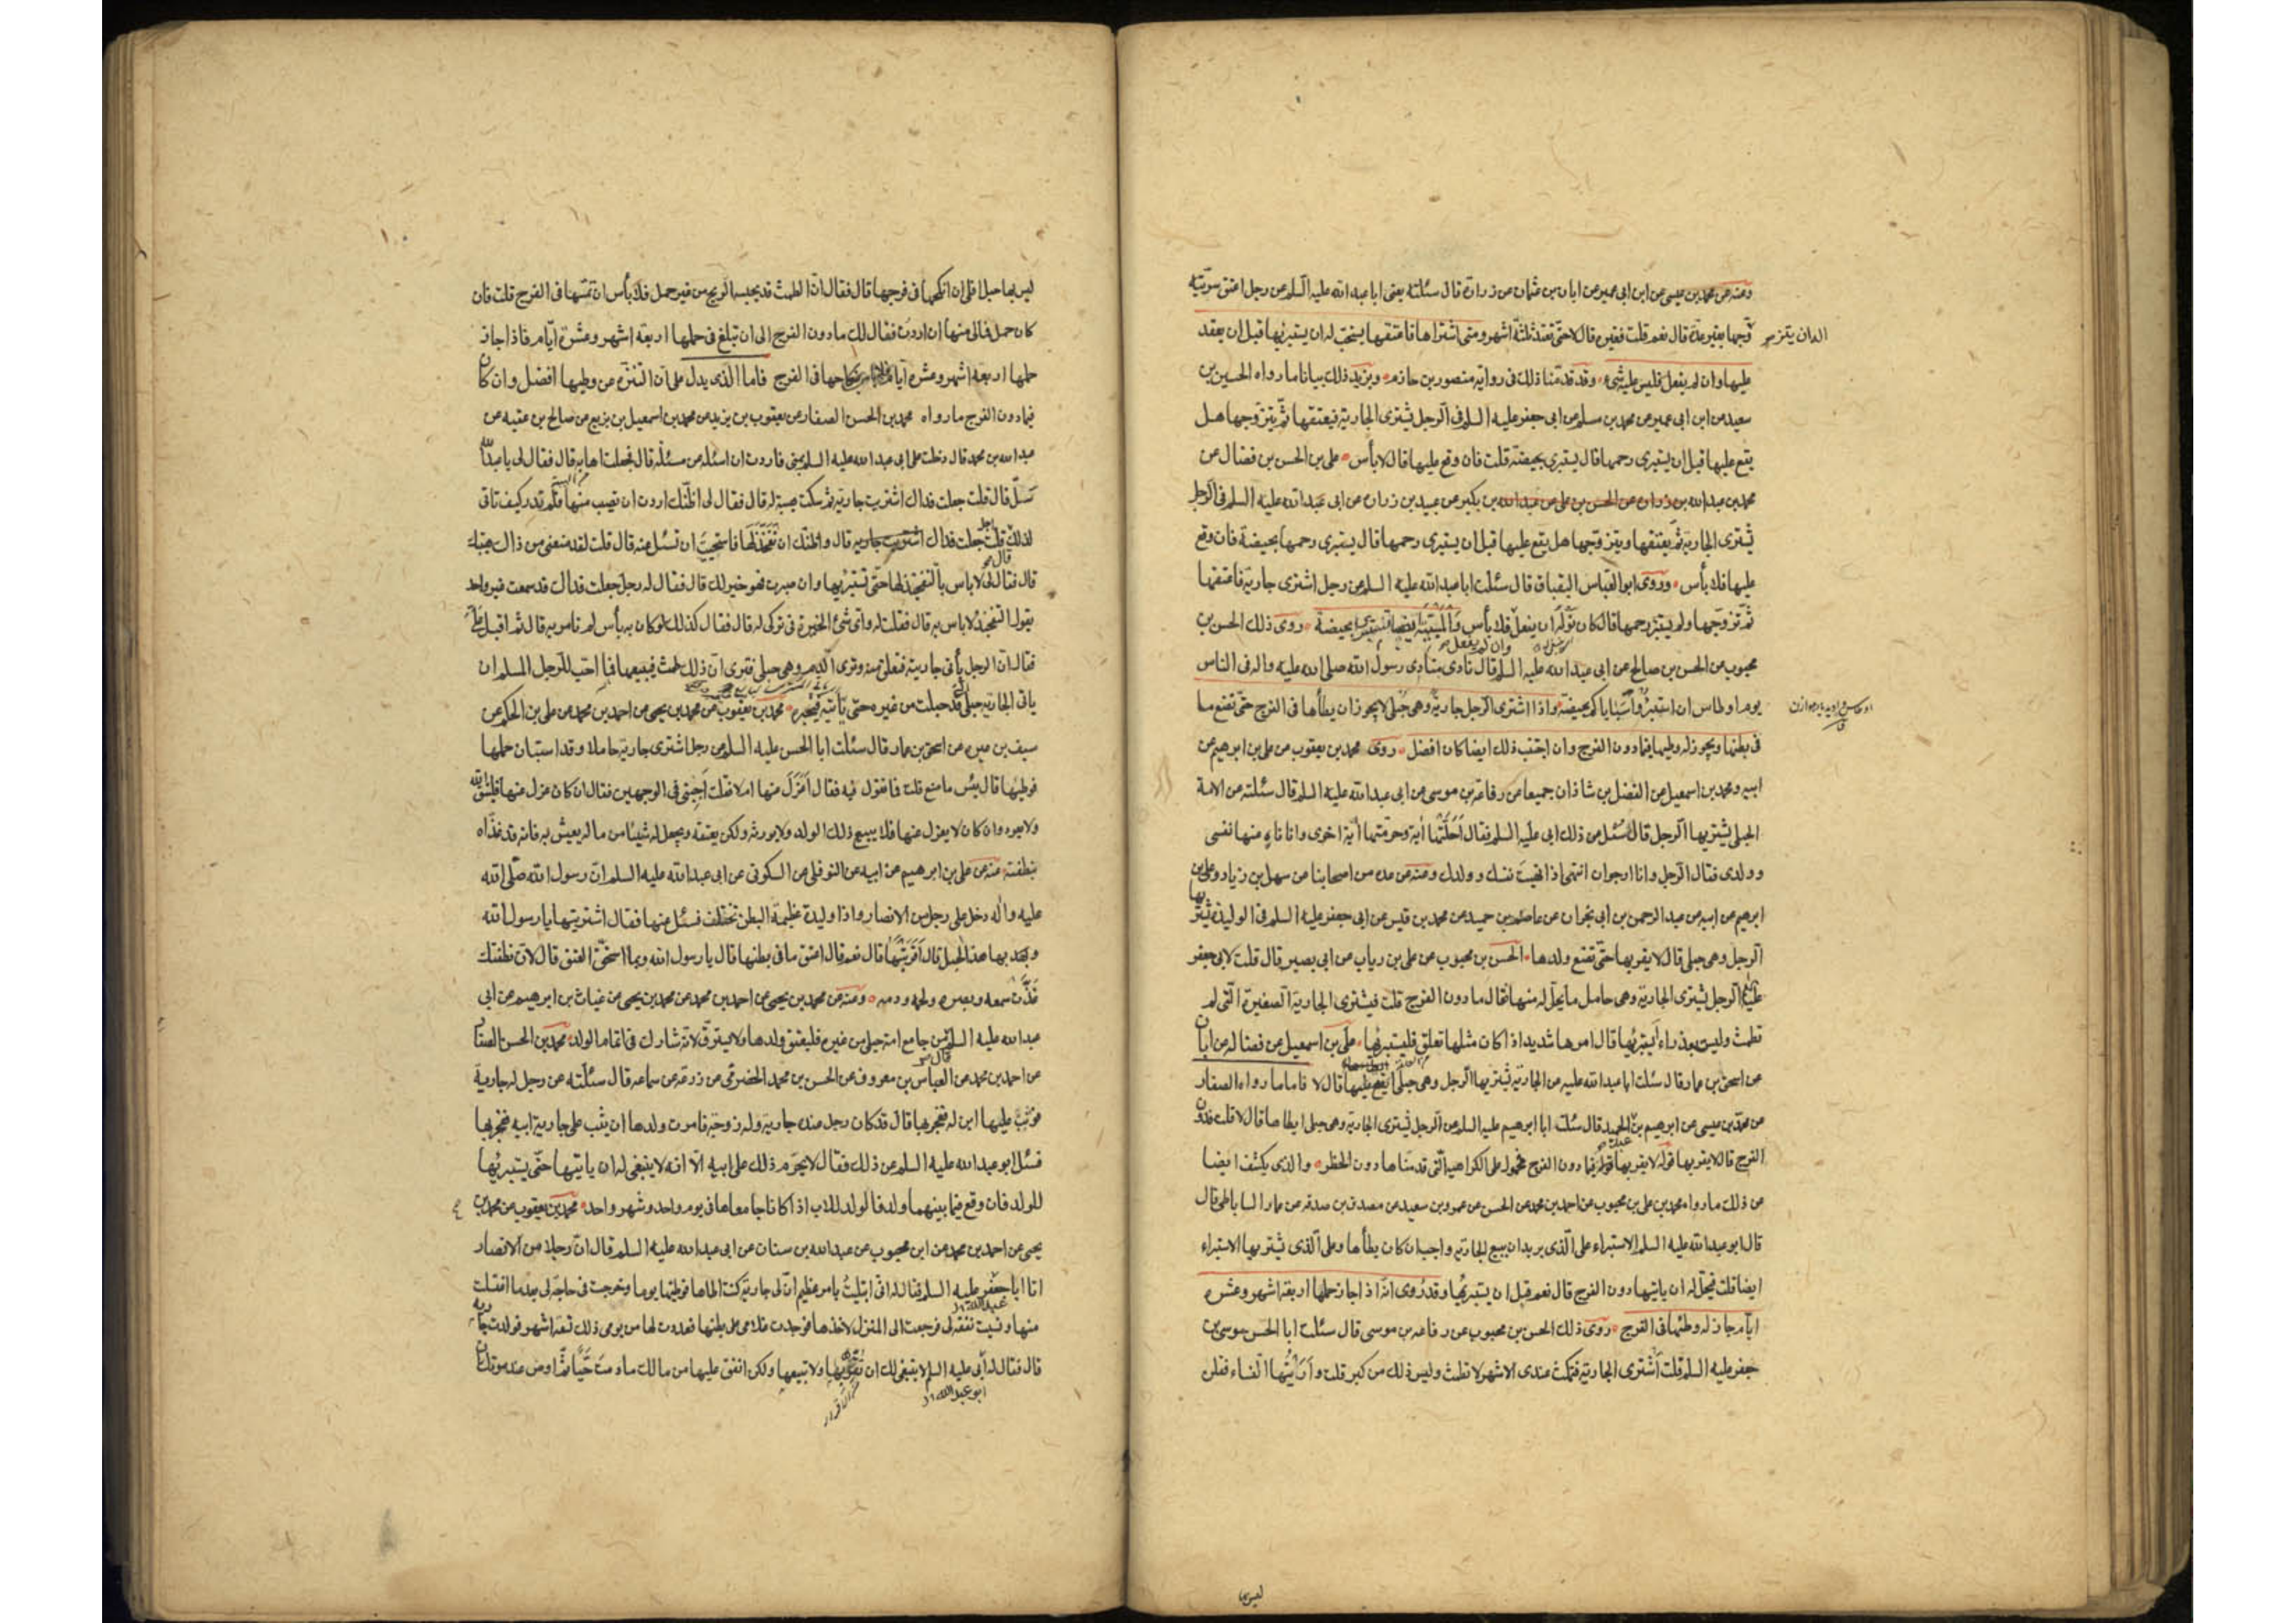 ومنه عن محمد بن عيسى عن ابن ابى عمير عن ابان بن عثمان عن زرارة قال سئلته يعنى ابا عبد الله عليه السلم عن رجل اعتق سريّة
اله ان يتزوّجها بغير عدّة قال نعم قلت فغيره قال لا حتّى تعتد ثلثة اشهر ومتى اشتراها فاعتقها يستحبّ له ان يستبريها قبل ان يعقد
عليها وان لم يفعل فليس عليه شىء وقد قدّمنا ذلك فى رواية منصور بن حازم ويزيد ذلك بيانا ما رواه الحسين بن
سعيد عن ابن ابى عمير عن محمد بن مسلم عن ابى جعفر عليه السلم فى الرجل يشترى الجارية فيعتقها ثمّ يتزوّجها هل
يقع عليها قبل ان يستبرى رحمها قال يستبرى بحيضة قلت فان وقع عليها قال لا بأس على بن الحسن بن فضال عن
محمد بن عبد الله بن زرارة عن الحسن بن على عن عبد الله بن بكير عن عبيد بن زرارة عن ابى عبد الله عليه السلم فى الرجل
يشترى الجارية ثمّ يعتقها ويتزوّجها هل يقع عليها قبل ان يستبرى رحمها قال يستبرى رحمها بحيضة فان وقع
عليها فلا بأس وروى ابو العباس البقباق قال سئلت ابا عبد الله عليه السلم عن رجل اشترى جارية فاعتقها
ثمّ تزوّجها ولم يستبرء رحمها قال كان نوله ان يفعل فلا بأس بحيضة روى ذلك الحسن بن
وان لم يفعل
محبوب عن الحسن بن صالح عن ابى عبد الله عليه السلم قال نادى منادى رسول الله صلى الله عليه واله فى الناس
يوم اوطاس ان استبرؤا سباياكم بحيضة واذا اشترى الرجل جارية وهى حبلى لا يجوز ان يطأها فى الفرج حتّى تضع ما
فى بطنها ويجوز له وطيها فيما دون الفرج وان اجتنب ذلك ايضا كان افضل روى محمد بن يعقوب عن على بن ابرهيم عن
ابيه ومحمد بن اسمعيل عن الفضل بن شاذان جميعا عن رفاعة بن موسى عن ابى عبد الله عليه السلم قال سئلته عن الامة
الحبلى يشتريها الرجل قال سئل عن ذلك ابى عليه السلم فقال احلّتها آية وحرّمتها آية اخرى وانا ناه عنها نفسى
وولدى فقال الرجل وانا ارجو ان انتهى اذا نهيت نفسك وولدك ومنه عن عدة من اصحابنا عن سهل بن زياد وعلى بن
ابرهيم عن ابيه عن عبد الرحمن بن ابى نجران عن عاصم بن حميد عن محمد بن قيس عن ابى جعفر عليه السلم فى الوليدة يشتريها
الرجل وهى حبلى قال لا يقربها حتّى تضع ولدها الحسن بن محبوب عن على بن رياب عن ابى بصير قال قلت لابى جعفر
عليه السلم الرجل يشترى الجارية وهى حامل ما يحلّ له منها فقال ما دون الفرج قلت فيشترى الجارية الصغيرة الّتى لم
تطمث وليست بعذراء أيستبريها قال امرها شديد اذا كان مثلها تعلق فليستبريها على بن اسمعيل عن فضاله عن ابان
عن اسحق بن عمار قال سئلت ابا عبد الله عليه عن الجارية يشتريها الرجل وهى حبلى ايقع عليها قال لا فاما ما رواه الصفار
عن محمد بن عيسى عن ابرهيم بن عبد الحميد قال سئلت ابا ابرهيم عليه السلم عن الرجل يشترى الجارية وهى حبلى ايطاها قال لا قلت فدون
الفرج قال لا يقربها قوله لا يقربها فيما دون الفرج محمول على الكراهية الّتى قدمناها دون الحظر والذى يكشف ايضا
عن ذلك ما رواه محمد بن على بن محبوب عن احمد بن محمد عن الحسن عن عمرو بن سعيد عن مصدق بن صدقه عن عمار الساباطى قال
قال ابو عبد الله عليه السلم الاستبراء على الّذى يريد ان يبيع الجارية واجب ان كان يطأها وعلى الّذى يشتريها الاستبراء
ايضا قلت فيحلّ له ان ياتيها دون الفرج قال نعم قبل ان يستبريها وقد روى انّه اذا جاز حملها اربعة اشهر وعشرة
ايام جاز له وطئها فى الفرج روى ذلك الحسن بن محبوب عن رفاعه بن موسى قال سئلت ابا الحسن موسى بن
جعفر عليه السلم قلت أشترى الجارية فتمكث عندى الاشهر لا تطمث وليس ذلك من كبر قلت وأريتها النساء فقلن
ليس بها
ليس بها حبل افلى ان انكحها فى فرجها قال فقال انّ الطمث قد يحبسه الريح من غير حمل فلا بأس ان تمسّها فى الفرج قلت فان
كان حمل فمالى منها ان اردت فقال لك ما دون الفرج الى ان تبلغ فى حملها اربعة اشهر وعشرة ايّام فاذا جاز
حملها اربعه اشهر وعشره ايّام فلا بأس بنكاحها فى الفرج فاما الّذى يدل على ان التنزّه عن وطيها افضل وان كان
فيما دون الفرج ما رواه محمد بن الحسن الصفار عن يعقوب بن يزيد عن محمد بن اسمعيل بن بزيع عن صالح بن عقبه عن
عبد الله بن محمد قال دخلت على ابى عبد الله عليه السلم بمنى فاردت ان اسئله عن مسئلة قال فجعلت اهابه قال فقال لى يا عبد الله
سل قال قلت جعلت فداك اشتريت جارية ثم سكت هيبة له قال فقال لى اظنّك اردت ان تصيب منها فلم تدر كيف تاتى
لذلك قلت اجل جعلت فداك قال واظنّك ان تفخّذ لها فاستحييت ان تسئل عنه قال قلت لقد منعنى من ذاك هيبتك
قال فقال لى لا باس بالتفخيذ لها حتّى تستبريها وان صبرت فهو خير لك قال فقال له رجل جعلت فداك قد سمعت غير واحد
يقول التفخيذ لا باس به قال فقلت له واى شىء الخيرة فى تركى له قال فقال كذلك لو كان به بأس لم نامر به قال ثم اقبل علىّ
فقال انّ الرجل يأتى جاريته فتعلق منه وترى الدم وهى حبلى فترى انّ ذلك طمث فيبيعها فما احبّ للرجل المسلم ان
ياتى الجارية حبلى قد حبلت من غيره حتى يأتيه فيخبره محمد بن يعقوب عن محمد بن يحيى عن احمد بن محمد عن على بن الحكم عن
سيف بن عميره عن اسحق بن عمار قال سئلت ابا الحسن عليه السلم عن رجل اشترى جارية حاملا وقد استبان حملها
فوطيها قال بئس ما صنع قلت فما تقول فيه فقال اعزل عنها ام لا فقلت اجبنى فى الوجهين فقال ان كان عزل عنها فليتق الله
ولا يعود وان كان لا يعزل عنها فلا يبيع ذلك الولد ولا يورثه ولكن يعتقه ويجعل له شيئا من ماله يعيش به فانه قد غذاه
بنطفته منه عن على بن ابرهيم عن ابيه عن النوفلى عن السكونى عن ابى عبد الله عليه السلم ان رسول الله صلّى الله
عليه واله دخل على رجل من الانصار واذا وليدة عظيمة البطن تختلف فسئل عنها فقال اشتريتها يا رسول الله
وبها هذا الحبل قال أقربتها قال نعم قال اعتق ما فى بطنها قال يا رسول الله وبما استحقّ العتق قال لانّ نطفتك
غذّت سمعه وبصره ولحمه ودمه ومنه عن محمد بن يحيى عن احمد بن محمد عن محمد بن يحيى عن غياث بن ابرهيم عن ابى
عبد الله عليه السلم قال من جامع امة حبلى من غيره فعليه ان يعتق ولدها ولا يسترقّ لانّه شارك فى اتمام الولد محمد بن الحسن الصفار
عن احمد بن محمد عن العباس بن معروف عن الحسن بن محمد الحضرمى عن زرعة عن سماعه قال سئلته عن رجل له جارية
فوثب عليها ابن له ففجر بها قال قد كان رجل عنده جارية وله زوجة فامرت ولدها ان يثب على جارية ابيه ففجر بها
فسئل ابو عبد الله عليه السلم عن ذلك فقال لا يحرّم ذلك على ابيه الّا انه لا ينبغى له ان ياتيها حتّى يستبريها
للولد فان وقع فيما بينهما ولد فالولد للاب اذا كانا جامعاها فى يوم واحد وشهر واحد محمد بن يعقوب عن محمد بن
يحيى عن احمد بن محمد عن ابن محبوب عن عبد الله بن سنان عن ابى عبد الله عليه السلم قال انّ رجلا من الانصار
اتا ابا جعفر عليه السلم فقال له انّى ابتليت بامر عظيم انّ لى جارية كنت اطاها فوطئتها يوما وخرجت فى حاجة لى بعد ما اغتسلت
عبد الله
منها ونسيت نفقة لى فرجعت الى المنزل لاخذها فوجدت غلامى على بطنها فعددت لها من يومى ذلك تسعة اشهر فولدت جارية
قال فقال له أبى عليه السلم لا ينبغى لك ان تقربها ولا تبيعها ولكن انفق عليها من مالك ما دمت حيّا ثمّ اوص عند موتك
ابو عبد الله